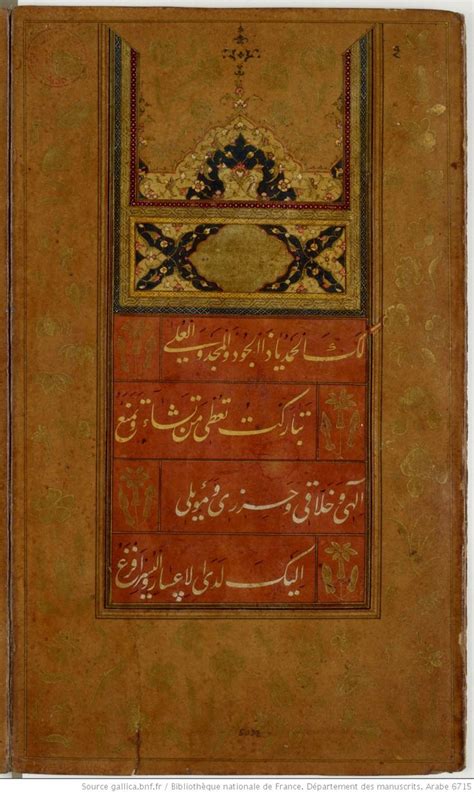 لک الحمد یا ذا الجود والمجد والعلی
تبارکت تعطی من تشاء وتمنع
الهی وخلاقی وحرزی وموئلی
الیک لدی الاعسار والیسر افزع
Source gallica.bnf.fr / Bibliothèque nationale de France. Département des manuscrits. Arabe 6715